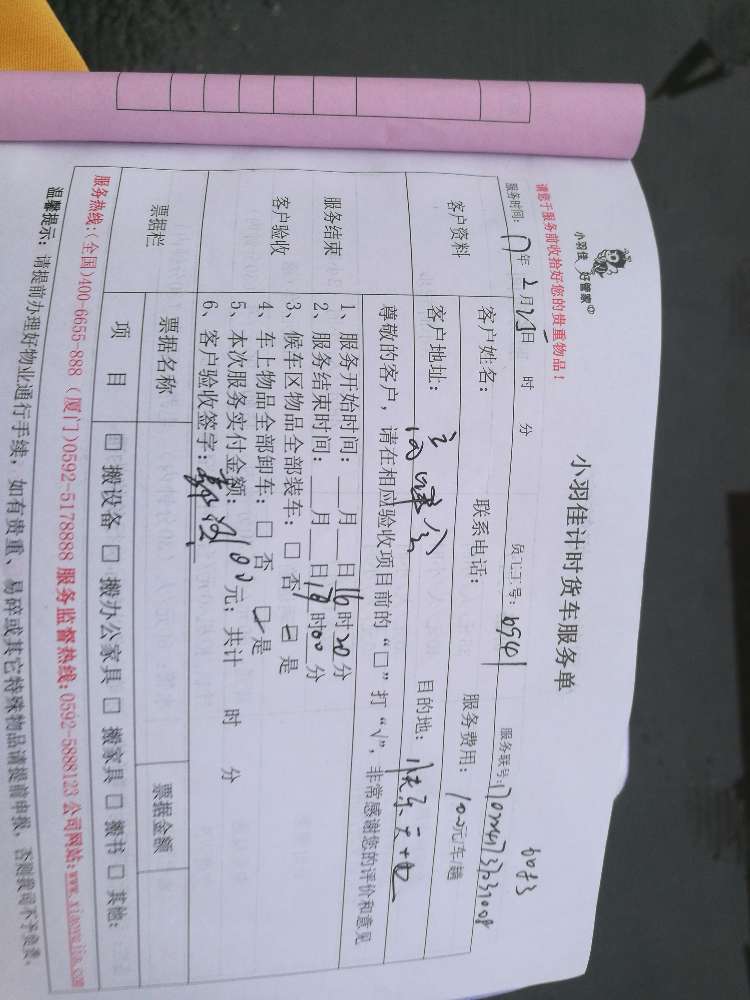 小羽佳 好管家
请您于服务前收拾好您的贵重物品！
小羽佳计时货车服务单
服务时间：17年2月25日 时 分 员工工号： 服务联号：
客户资料 客户姓名： 联系电话： 服务费用：100元/车/趟
客户地址： 目的地：
尊敬的客户，请在相应验收项目前的“□”打“√”，非常感谢您的评价和意见
服务结束
客户验收
1、服务开始时间：___月___日16时20分
2、服务结束时间：___月___日17时00分
3、候车区物品全部装车：□ 否 □ 是
4、车上物品全部卸车：□ 否 □ 是
5、本次服务实付金额：100元；共计 时 分
6、客户验收签字：
票据栏 票据名称 票据金额
项 目 □ 搬设备 □ 搬办公家具 □ 搬家具 □ 搬书 □ 其他：
服务热线:(全国)400-6655-888 (厦门)0592-5178888 服务监督热线:0592-5888123 公司网站:www.xiaoyujia.com
温馨提示：请提前办理好物业通行手续，如有贵重、易碎或其它特殊物品请提前申报，否则我司不予负责。